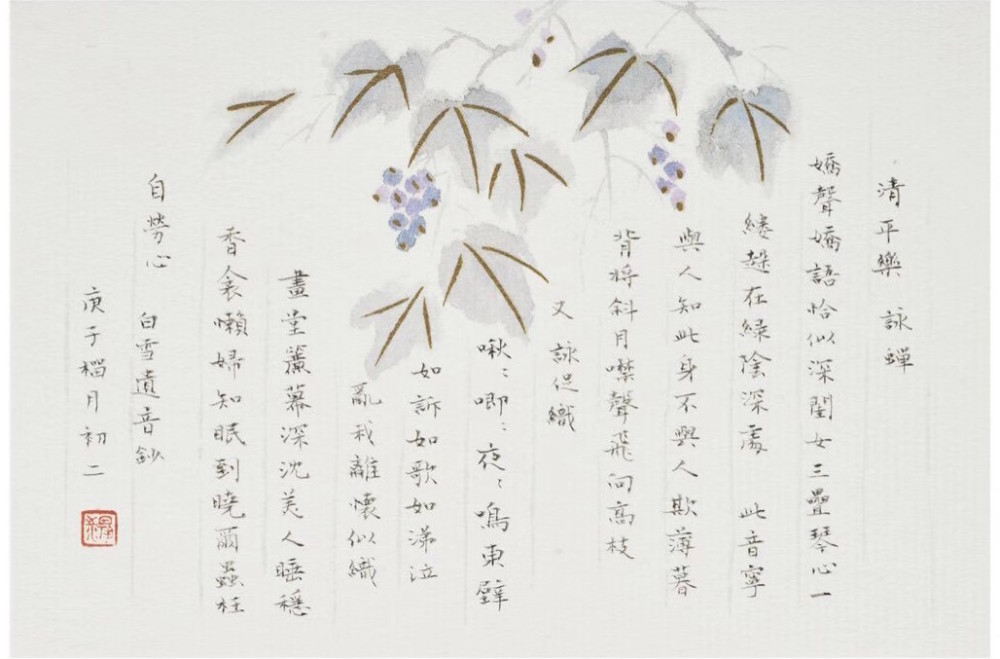 清平樂 詠蟬
嬌聲嬌語恰似深閨女三疊琴心一
縷趓在綠陰深處 此音寧
與人知此身不與人欺薄暮
背將斜月噤聲飛向高枝
又 詠促織
啾〻唧〻夜〻鳴東壁
如訴如歌如涕泣
亂我離懷似織
畫堂簾幕深沈美人睡穩
香衾懶婦知眠到曉爾蟲枉
自勞心 白雪遺音鈔
庚子榴月初二